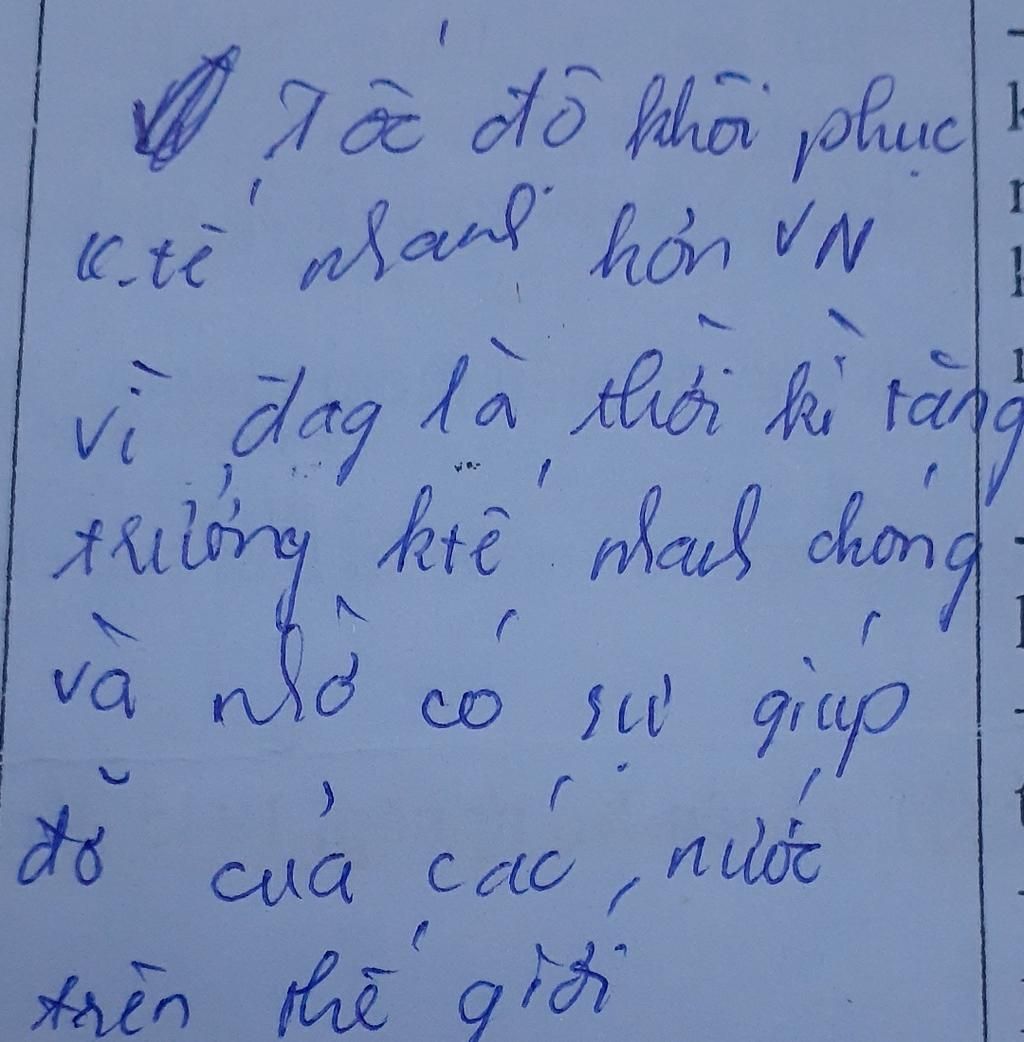 Tốc độ khôi phục
k.tế nhanh hơn VN
vì đag là thời kì tăng
trưởng ktế nhanh chóng
và nhờ có sự giúp
đỡ của các nước
trên thế giới